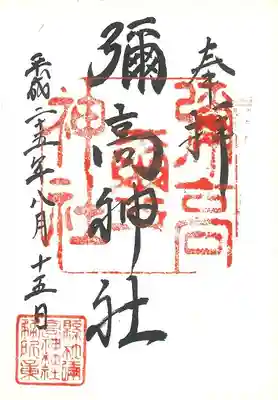 奉拝
彌高神社
平成二十五年八月十五日
彌高
神社
縣社彌
高神社